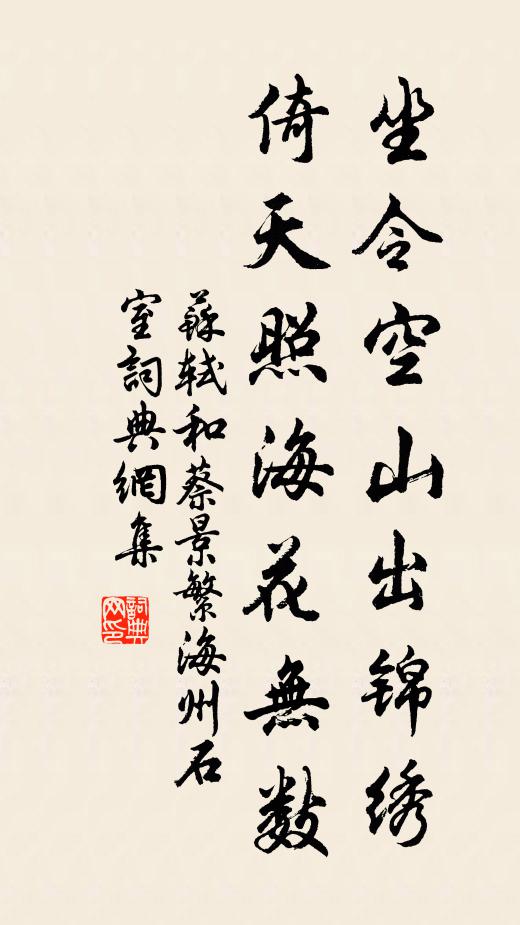 坐令空山出锦绣
倚天照海花無数
蘇轼和蔡景繁海州石
室詞典網集
詞典
网印